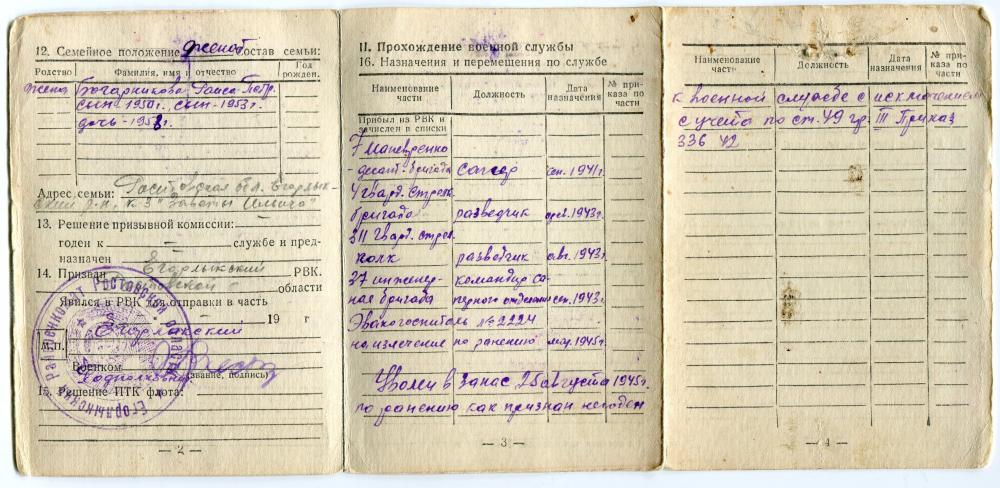 12. Семейное положение женат Состав семьи:
Родство
Фамилия, имя и отчество
Год рожден.
жена Раиса Петр.
сын-1950г. сын-1953г.
дочь-1958г.
Адрес семьи: Ростовская обл. Егорлык-
ский р-н, к-з "Заветы Ильича"
13. Решение призывной комиссии:
годен к — службе и пред-
назначен —
14. Призван Егорлыкский РВК.
Ростовской области
Явился в РВК для отправки в часть
19 г
Егорлыкский
М.П.
Военком
Подполковник
(звание, подпись)
15. Решение ПТК флота:
— 2 —
II. Прохождение военной службы
16. Назначения и перемещения по службе
Наименование части
Должность
Дата назначения
№ приказа по части
Прибыл из РВК и
зачислен в списки
7 Маневренно
-десант. бригада сапер сен. 1941г.
4 гвард. Стрелк.
бригада разведчик 1943г.
311 Гвард. стрел.
полк разведчик авг. 1943г.
37 инженер- командир са-
ная бригада перного отделения сен. 1943г.
Эвакогоспиталь № 2224
на излечение по ранению мар. 1945г.
Уволен в запас 25 августа 1945г.
по ранению как признан негоден
— 3 —
Наименование части
Должность
Дата назначения
№ приказа по части
к военной службе с исключением
с учета по ст. 49 гр. III Приказ
336 42
— 4 —